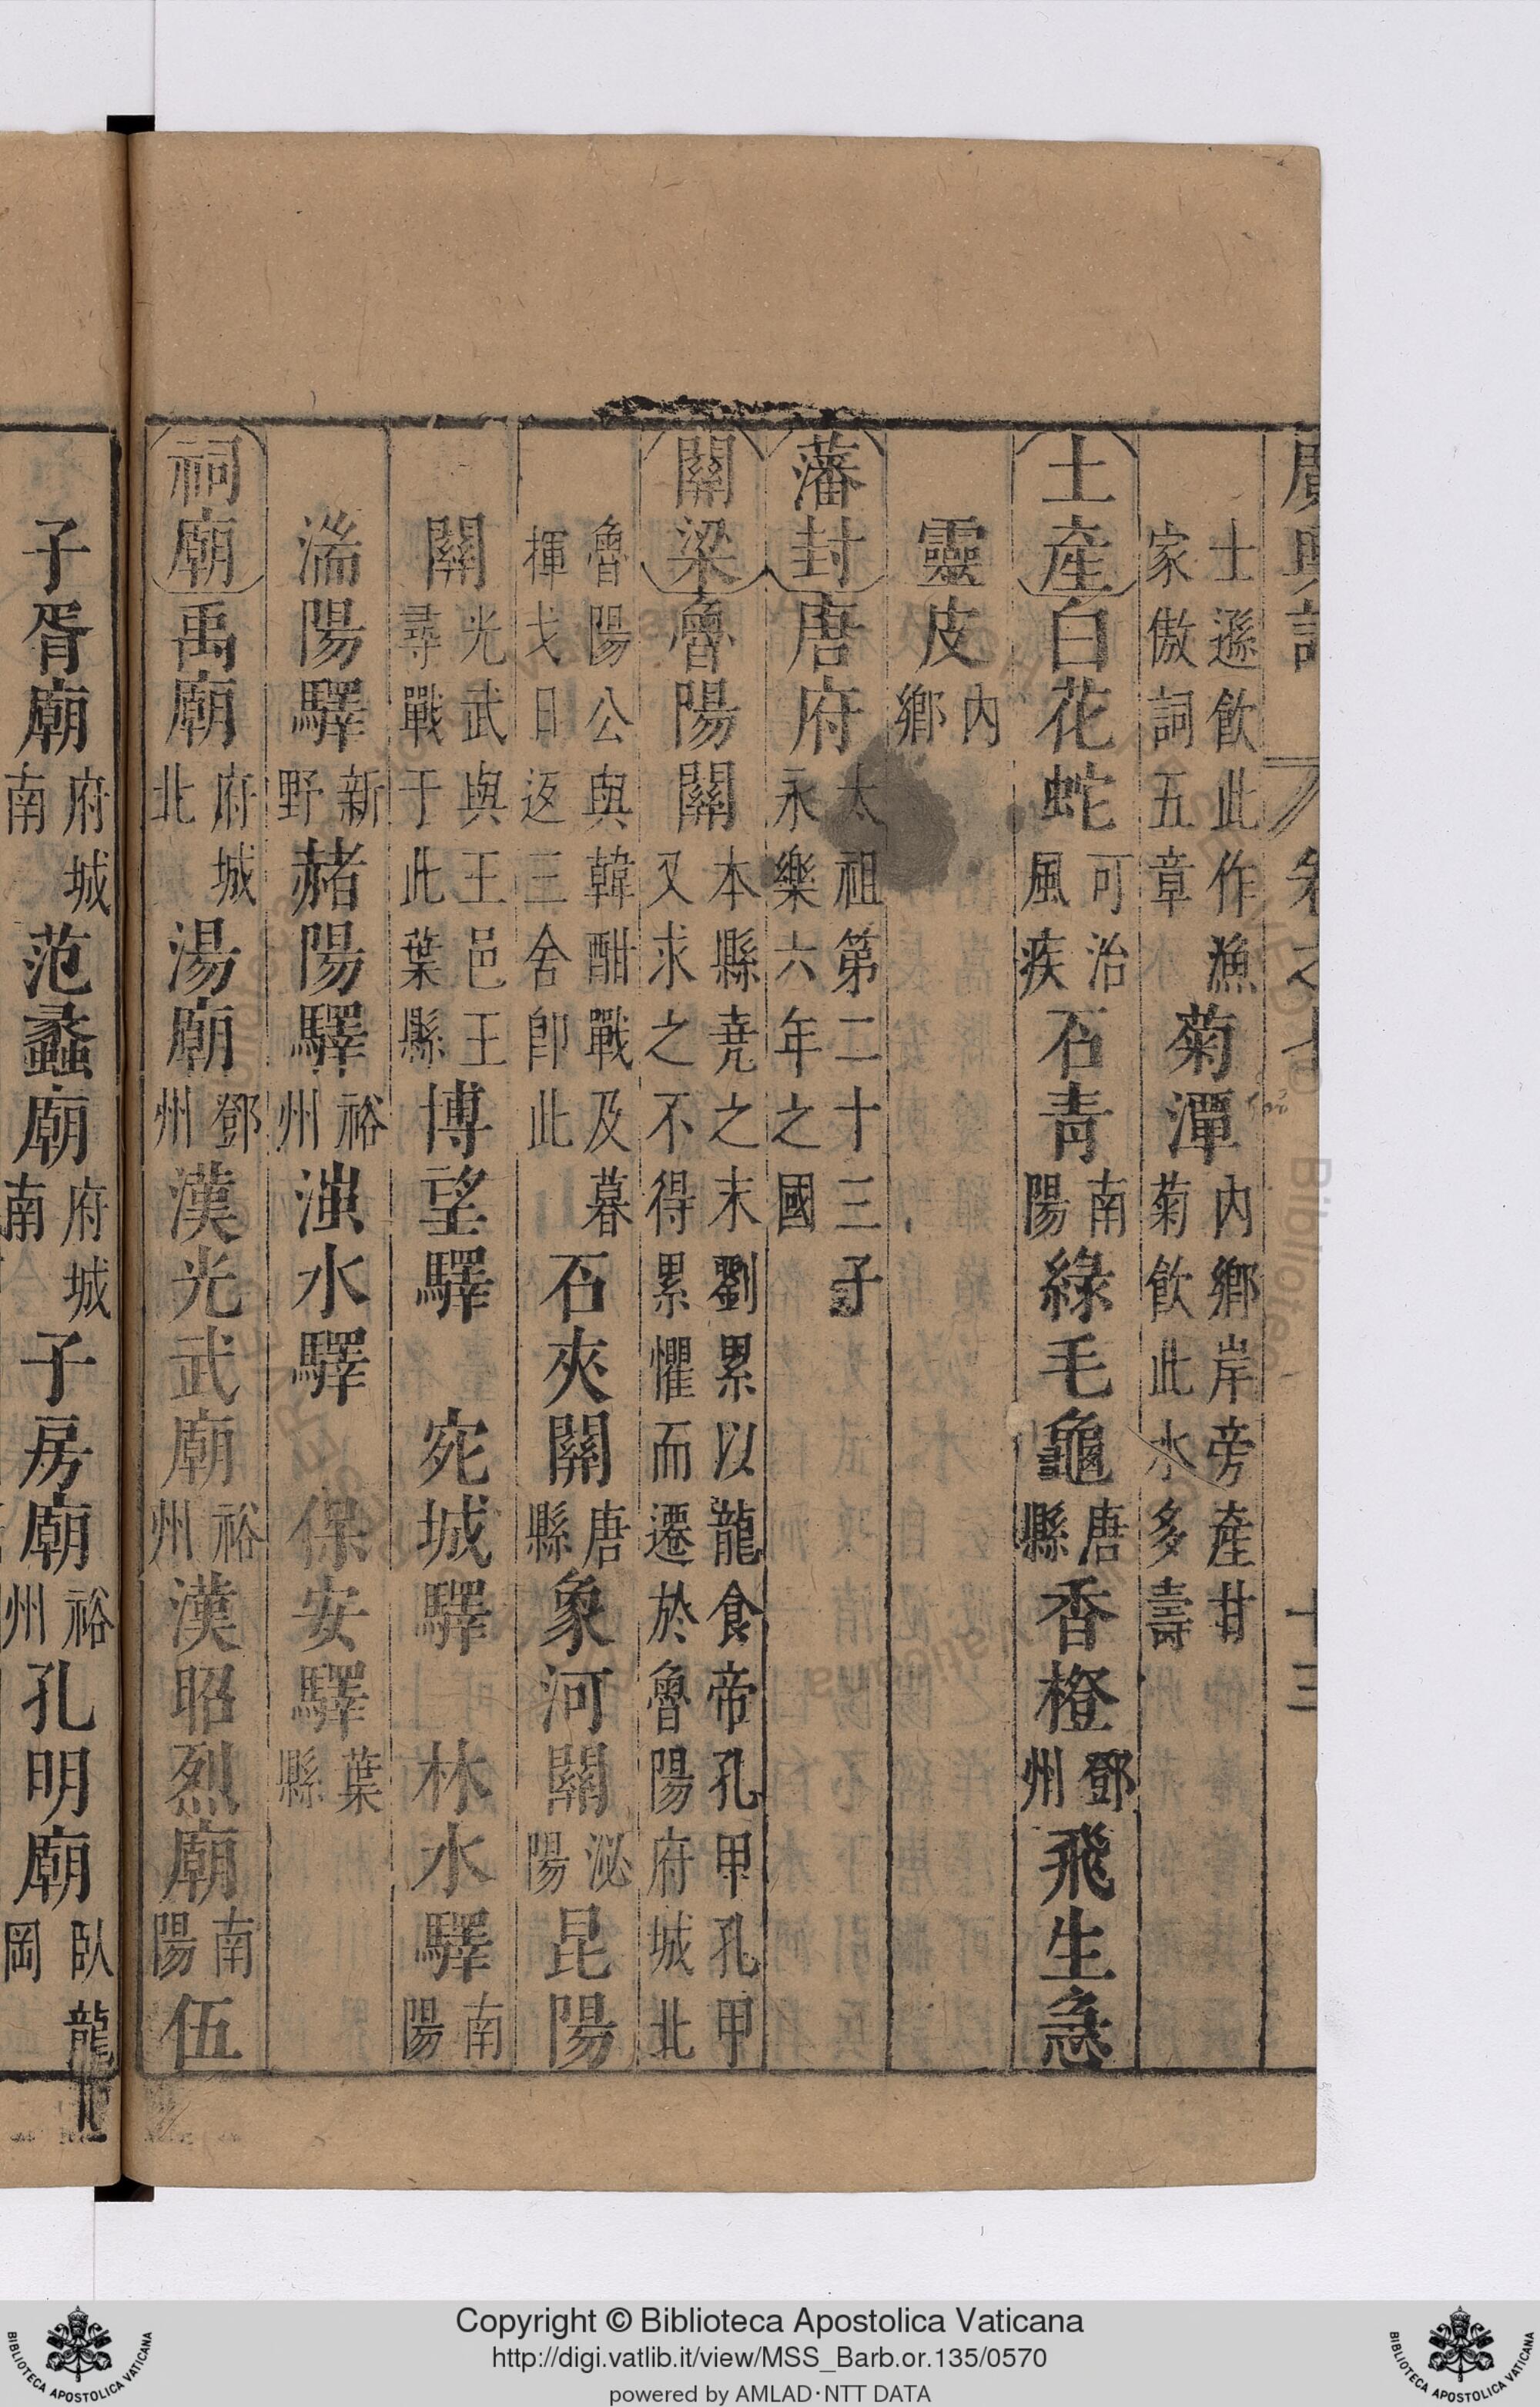 廣輿記 卷之七 十三
士遜飲此作漁家傲詞五章 菊潭 內鄉岸旁產甘菊飲此水多壽
土產 白花蛇 可治風疾 石青 南陽 綠毛龜 唐縣 香橙 鄧州 飛生 急
靈皮 內鄉
藩封 唐府 太祖第二十三子永樂六年之國
關梁 魯陽關 本縣堯之末劉累以龍食帝孔甲孔甲又求之不得累懼而遷於魯陽府城北
魯陽公與韓酣戰及暮揮戈日返三舍卽此 石夾關 唐縣 象河關 泌陽 昆陽
關 光武與王邑王尋戰于此葉縣 博望驛 宛城驛 林水驛 南陽
湍陽驛 新野 赭陽驛 裕州 滍水驛 保安驛 葉縣
祠廟 禹廟 府城北 湯廟 鄧州 漢光武廟 裕州 漢昭烈廟 南陽 伍
子胥廟 府城南 范蠡廟 府城南 子房廟 裕州 孔明廟 臥龍岡
Copyright © Biblioteca Apostolica Vaticana
http://digi.vatlib.it/view/MSS_Barb.or.135/0570
powered by AMLAD·NTT DATA
BIBLIOTECA APOSTOLICA VATICANA
BIBLIOTECA APOSTOLICA VATICANA